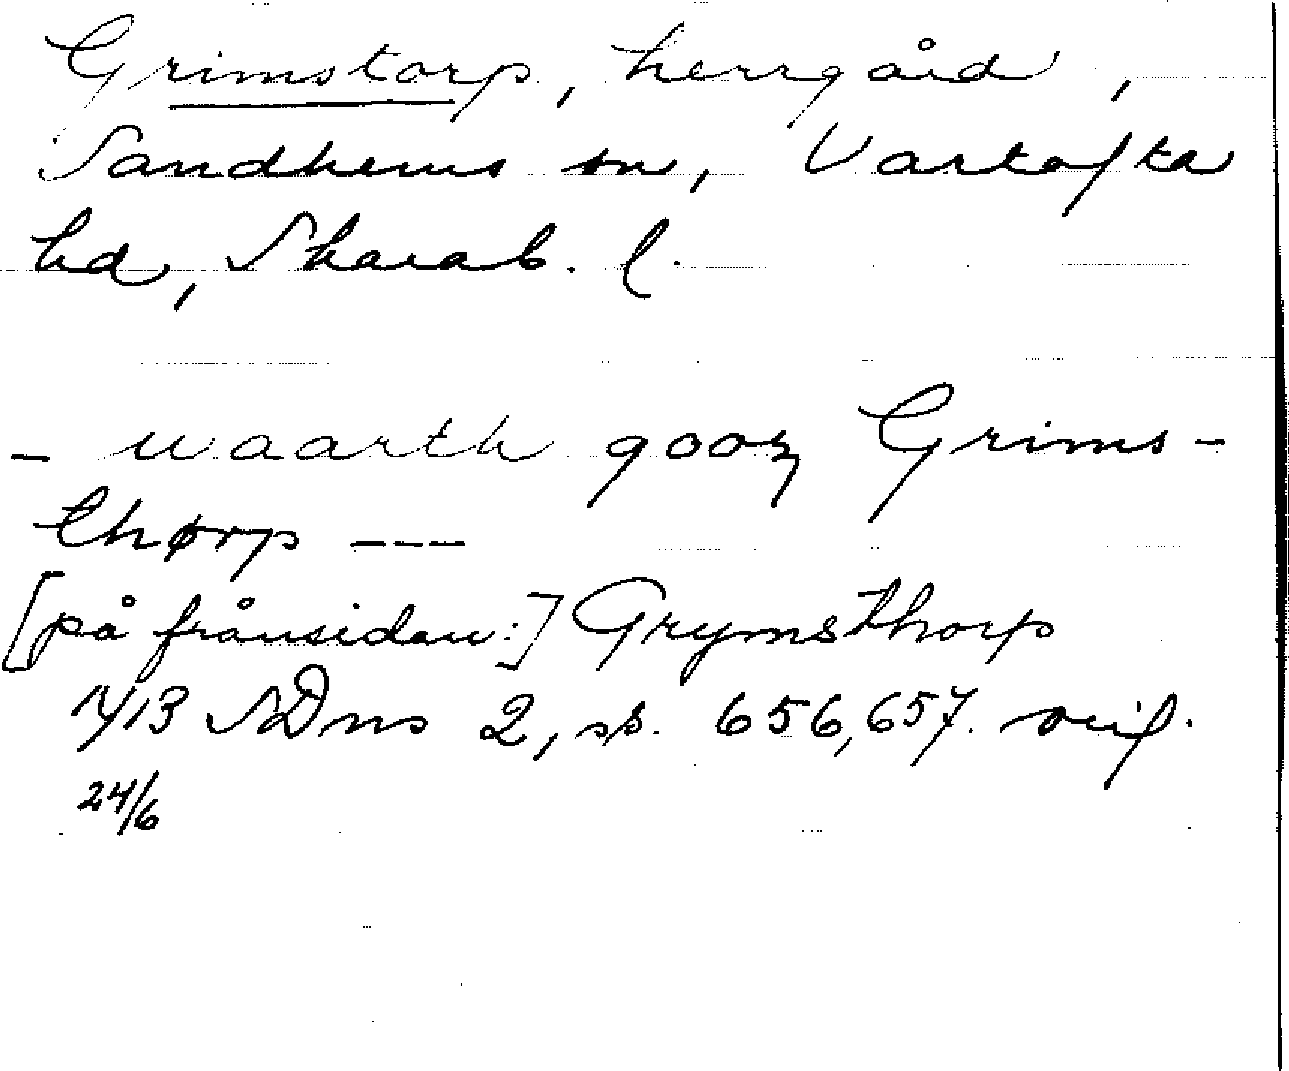 Grimstorp, herrgård,
Sandhems sn, Vartofta
hd, Skarab. l.
- waarth gooz Grims-
thørp ---
[på frånsidan:] Grymsthorp
1413 SDns 2, ss. 656,657. orig.
24/6